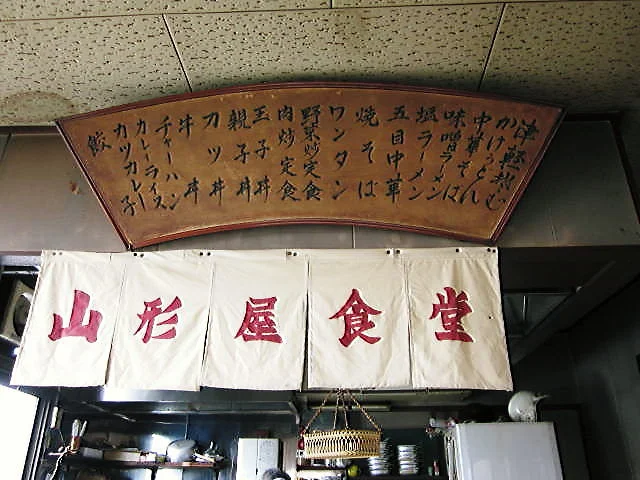 津軽
かけうどん
中華そば
味噌ラーメン
塩ラーメン
五目中華
焼そば
ワンタン
野菜炒定食
肉炒定食
玉子丼
親子丼
カツ丼
牛丼
チャーハン
カレーライス
カツカレー
餃子
山形屋食堂